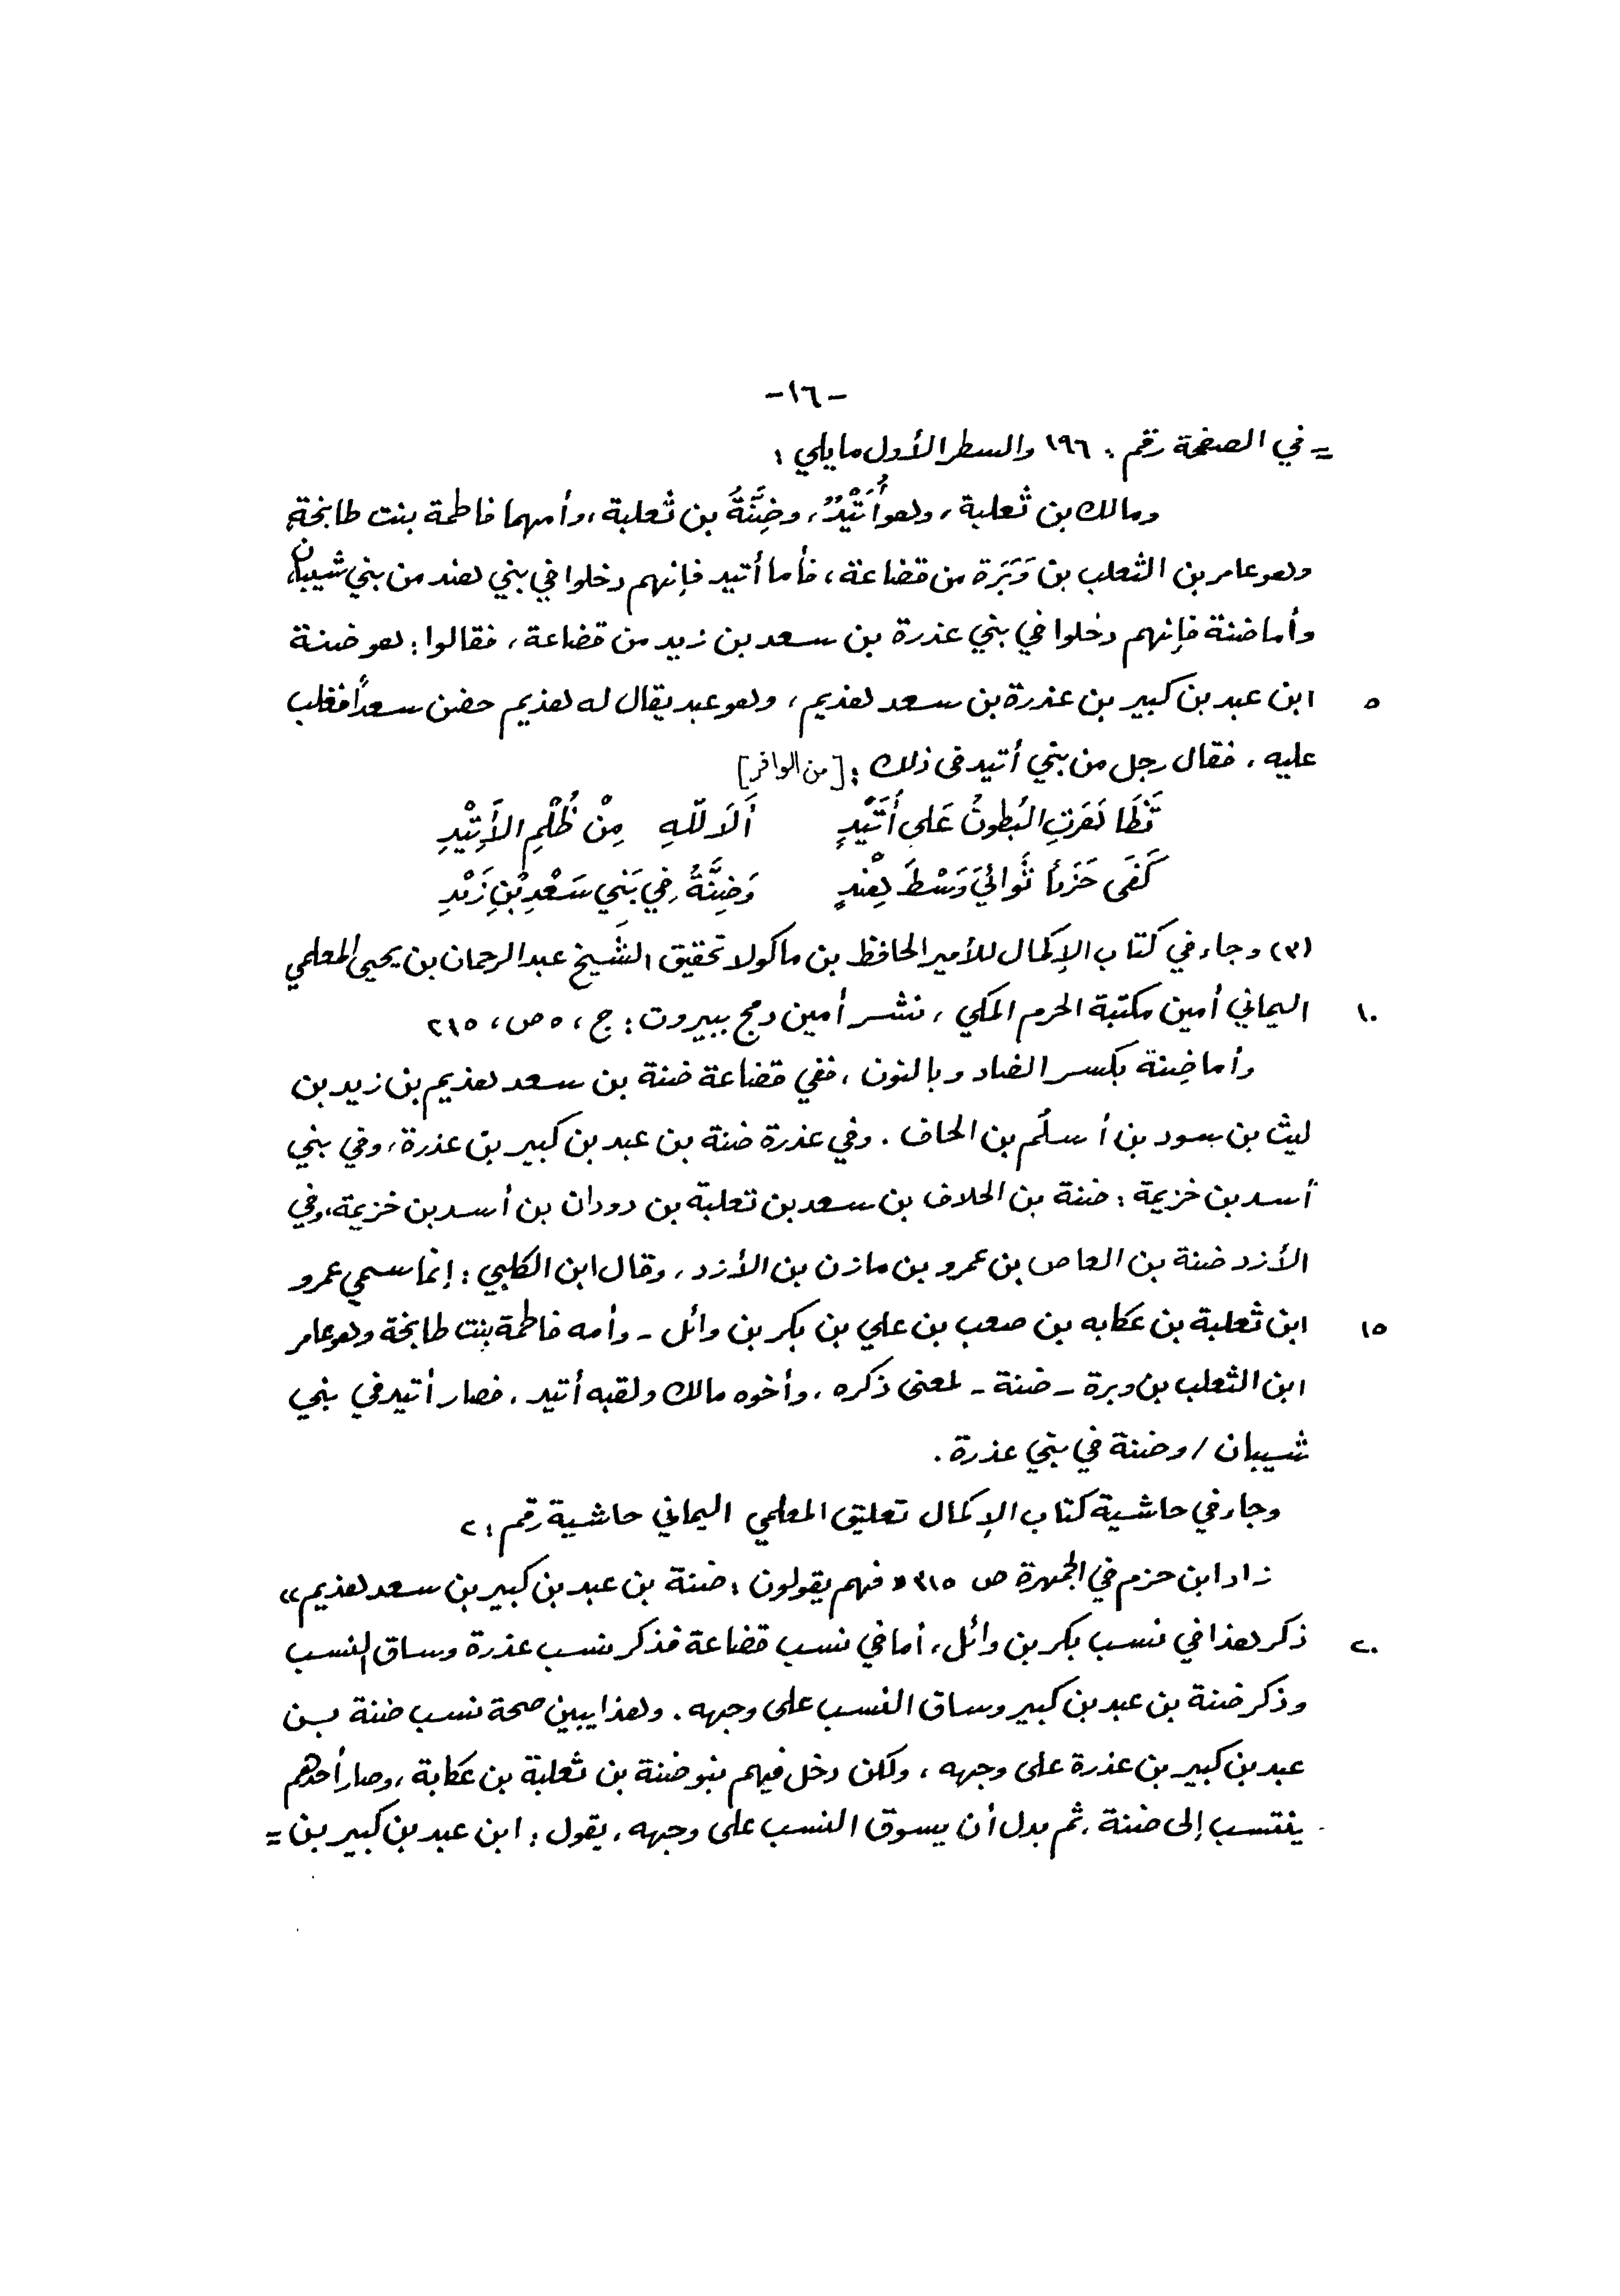 -١٦-
= في الصفحة رقم: ١٩٦ والسطر الأول ما يلي:
ومالك بن ثعلبة، وهو أُتَيْدٌ، وضِنَّةُ بن ثعلبة، وأمهما فاطمة بنت طابخة
وهو عامر بن الثعلب بن وَبَرَة من قضاعة، فأما أتيد فإنهم دخلوا في بني هند من بني شيبان،
وأما ضنة فإنهم دخلوا في بني عذرة بن سعد بن زيد من قضاعة، فقالوا: هو ضنة
٥ ابن عبد بن كبير بن عذرة بن سعد هذيم، وهو عبد يقال له هذيم حضن سعداً فغلب
عليه، فقال رجل من بني أتيد في ذلك: [من الوافر]
تَظَاهَرَتِ البُطونُ عَلى أُتَيْدٍ أَلَا للهِ مِنْ ظُلْمِ الأُتَيْدِ
كَفَى حَزَناً ثَوائيَ وَسْطَ هِنْدٍ وَضِنَّةُ فِي بَني سَعْدِ بْنِ زَيْدِ
(٣) وجاء في كتاب الإكمال للأمير الحافظ بن ماكولا تحقيق الشيخ عبد الرحمان بن يحيى المعلمي
١٠ اليماني أمين مكتبة الحرم المكي، نشر أمين دمج ببيروت: ج، ٥ ص، ٢١٥
وأما ضِنة بكسر الضاد وبالنون، ففي قضاعة ضنة بن سعد هذيم بن زيد بن
ليث بن سود بن أسلُم بن الحاف. وفي عذرة ضنة بن عبد بن كبير بن عذرة، وفي بني
أسد بن خزيمة: ضنة بن الحلاف بن سعد بن ثعلبة بن دودان بن أسد بن خزيمة، وفي
الأزد ضنة بن العاص بن عمرو بن مازن بن الأزد، وقال ابن الكلبي: إنما سمي عمرو
١٥ ابن ثعلبة بن عكابه بن صعب بن علي بن بكر بن وائل - وأمه فاطمة بنت طابخة وهو عامر
ابن الثعلب بن وبرة - ضنة - لمعنى ذكره، وأخوه مالك ولقبه أتيد، فصار أتيد في بني
شيبان / وضنة في بني عذرة.
وجاء في حاشية كتاب الإكمال تعليق المعلمي اليماني حاشية رقم: ٢
زاد ابن حزم في الجمهرة ص ٣١٥ «فهم يقولون: ضنة بن عبد بن كبير بن سعد هذيم»
٢٠ ذكر هذا في نسب بكر بن وائل، أما في نسب قضاعة فذكر نسب عذرة وساق النسب
وذكر ضنة بن عبد بن كبير وساق النسب على وجهه. وهذا يبين صحة نسب ضنة بن
عبد بن كبير بن عذرة على وجهه، ولكن دخل فيهم بنو ضنة بن ثعلبة بن عكابة، وصار أحدهم
ينتسب إلى ضنة، ثم بدل أن يسوق النسب على وجهه، يقول: ابن عبد بن كبير بن =